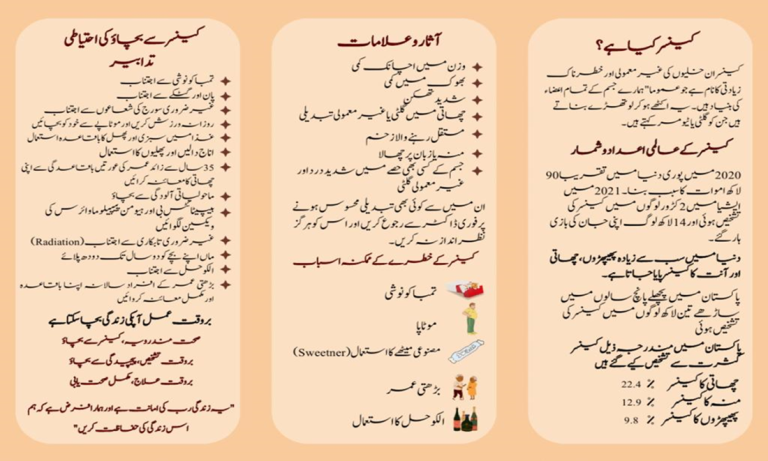 کینسر کیا ہے؟
کینسر ان خلیوں کی غیر معمولی اور خطرناک
زیادتی کا نام ہے جو عموما" ہمارے جسم کے تمام اعضاء
کی بنیاد ہیں۔ یہ اکٹھے ہو کر لوتھڑے بناتے
ہیں جن کو گلٹی یا ٹیومر کہتے ہیں۔
کینسر کے عالمی اعداد و شمار
2020 میں پوری دنیا میں تقریبا 90
لاکھ اموات کا سبب بنا۔ 2021 میں
ایشیا میں 2 کڑور لوگوں میں کینسر کی
تشخیص ہوئی اور 14 لاکھ لوگ اپنی جان کی بازی
ہار گئے۔
دنیا میں سب سے زیادہ پھیپھڑوں، چھاتی
اور آنت کا کینسر پایا جاتا ہے۔
پاکستان میں پچھلے پانچ سالوں میں
ساڑھے تین لاکھ لوگوں میں کینسر کی
تشخیص ہوئی
پاکستان میں مندرجہ ذیل کینسر
کثرت سے تشخیص کیے گئے ہیں
چھاتی کا کینسر ٪ 22.4
منہ کا کینسر ٪ 12.9
پھیپھڑوں کا کینسر ٪ 9.8
آثار و علامات
وزن میں اچانک کمی
بھوک میں کمی
شدید تھکن
چھاتی میں گلٹی یا غیر معمولی تبدیلی
مستقل رہنے والا زخم
منہ یا زبان پر چھالا
جسم کے کسی بھی حصے میں شدید درد اور
غیر معمولی گلٹی
ان میں سے کوئی بھی تبدیلی محسوس ہونے
پر فوری ڈاکٹر سے رجوع کریں اور اس کو ہرگز
نظر انداز نہ کریں۔
کینسر کے خطرے کے ممکنہ اسباب
تمباکو نوشی
موٹاپا
مصنوعی میٹھے کا استعمال (Sweetner)
بڑھتی عمر
الکوحل کا استعمال
کینسر سے بچاؤ کی احتیاطی
تدابیر
تمباکو نوشی سے اجتناب
پان اور گٹکے سے اجتناب
غیر ضروری سورج کی شعاعوں سے اجتناب
روزانہ ورزش کریں اور موٹاپے سے خود کو بچائیں
غذا میں سبزی اور پھل کا باقاعدہ استعمال
اناج دالیں اور پھلیوں کا استعمال
35 سال سے زائد عمر کی عورتیں باقاعدگی سے اپنی
چھاتی کا معائنہ کرائیں
ماحولیاتی آلودگی سے بچاؤ
ہیپیٹائٹس بی اور ہیومن پیپیلوما وائرس کی
ویکسین لگوائیں
غیر ضروری تابکاری سے اجتناب (Radiation)
ماں اپنے بچے کو دو سال تک دودھ پلائے
الکوحل سے اجتناب
بڑھتی عمر کے افراد سالانہ اپنا باقاعدہ
اور مکمل معائنہ کروائیں
بروقت عمل آپکی زندگی بچا سکتا ہے
صحت مند رویہ، کینسر سے بچاؤ
بروقت تشخیص، پیچیدگی سے بچاؤ
بروقت علاج، مکمل صحت یابی
"یہ زندگی رب کی امانت ہے اور ہمارا فرض ہے کہ ہم
اس زندگی کی حفاظت کریں"